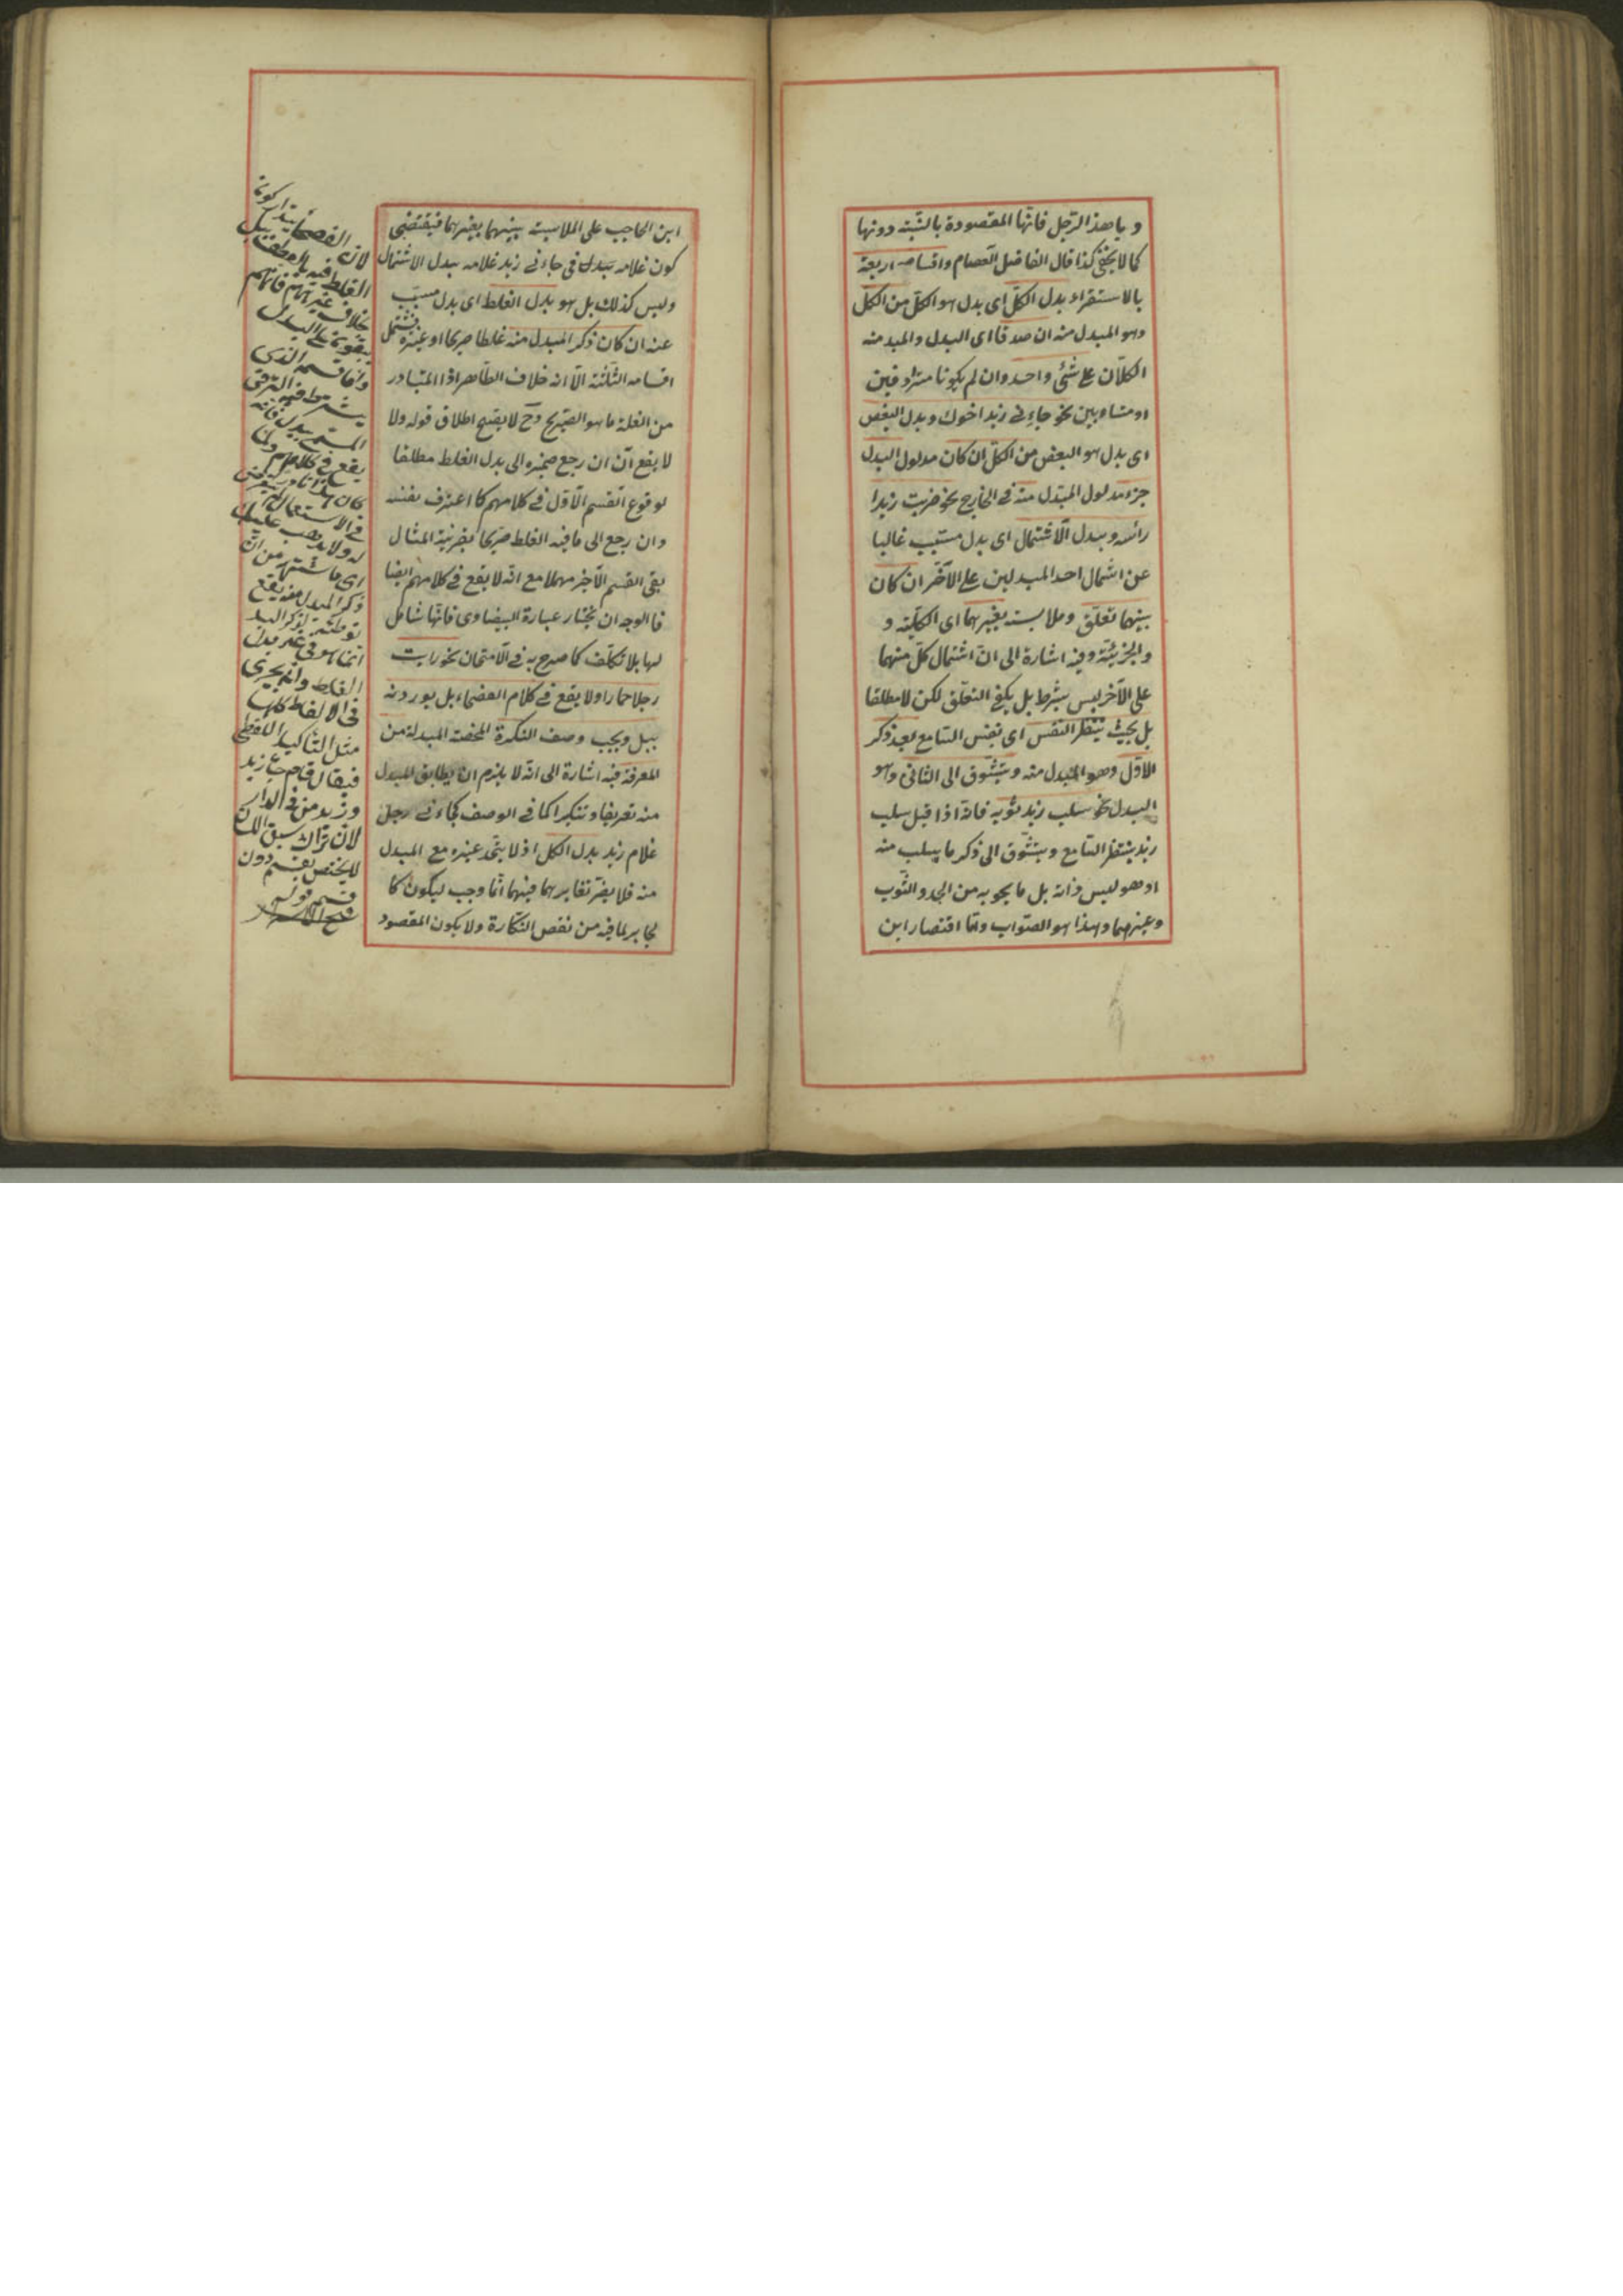 و يا هذا الرّجل فانّها المقصودة بالنّسبة دونها
كما لا يخفى كذا قال الفاضل العصام واقسامه اربعة
بالاستقراء بدل الكلّ اى بدل هو الكلّ من الكلّ
وهو المبدل منه ان صدقا اى البدل والمبدل منه
الكلّان على شئ واحد وان لم يكونا مترادفين
او متساويين نحو جاءنى زيد اخوك وبدل البعض
اى بدل هو البعض من الكلّ ان كان مدلول البدل
جزء مدلول المبدل منه فى الخارج نحو ضربت زيدا
رأسه وبدل الاشتمال اى بدل مسبّب غالبا
عن اشتمال احد المبدلين على الآخر ان كان
بينهما تعلّق وملابسة بغيرهما اى الكلّيّة و
والجزئيّة وفيه اشارة الى انّ اشتمال كلّ منهما
على الآخر ليس بشرط بل يكفى التعلّق لكن لا مطلقا
بل بحيث ينتظر النّفس اى نفس السّامع بعد ذكر
الاوّل وهو المبدل منه ويتشوّق الى الثّانى وهو
البدل نحو سلب زيد ثوبه فانّه اذا قيل سلب
زيد ينتظر السّامع ويتشوّق الى ذكر ما يسلب منه
اذ هو ليس ذاته بل ما يحويه من الجلد والثّوب
وغيرهما وهذا هو الصّواب وامّا اقتصار ابن
ابن الحاجب على الملابسة بينهما بغيرهما فيقتضى
كون غلامه بدل فى جاءنى زيد غلامه بدل الاشتمال
وليس كذلك بل هو بدل الغلط اى بدل مسبّب
عنه ان كان ذكر المبدل منه غلطا صريحا او غيره فيشتمل
اقسامه الثّلثة الّا انّه خلاف الظّاهر اذ المتبادر
من الغلط ما هو الصّريح وح لا يقبح اطلاق قوله ولا
لا يقع آن ان رجع ضميره الى بدل الغلط مطلقا
لوقوع القسم الاوّل فى كلامهم كما اعترف بنفسه
وان رجع الى ما فيه الغلط صريحا بقرينة المثال
بقى القسم الآخر مهملا مع انّه لا يقع فى كلامهم ايضا
فالوجه ان يختار عبارة البيضاوى فانّها شامل
لها بلا تكلّف كما صرح به فى الامتحان نحو رايت
رجلا حمارا ولا يقع فى كلام الفصحاء بل يوردونه
ببل ويجب وصف النكرة المحضة المبدلة من
المعرفة فيه اشارة الى انّه لا يلزم ان يطابق المبدل
منه تعريفا وتنكيرا كما فى الوصف فجاءنى رجل
غلام زيد بدل الكلّ اذ لا يتّحد غيره مع المبدل
منه فلا يضرّ تغايرهما فيهما انّما وجب ليكون كا
لجابر لما فيه من نقص النّكارة ولا يكون المقصود
لان الفصحاء
الغلط فيه
بخلاف غيرهم فانّهم
وامّا قسمه الذى
يشترط فيه الترقى
يقع فى كلامهم
فى الاستعمال
ذكر المبدل منه يقع
توطئة لذكر البدل
انّما هو فى غير بدل
الغلط وانّه يجرى
فى الالفاظ كلّها
مثل التّأكيد اللفظى
لا يختصّ بقسم دون
قسم